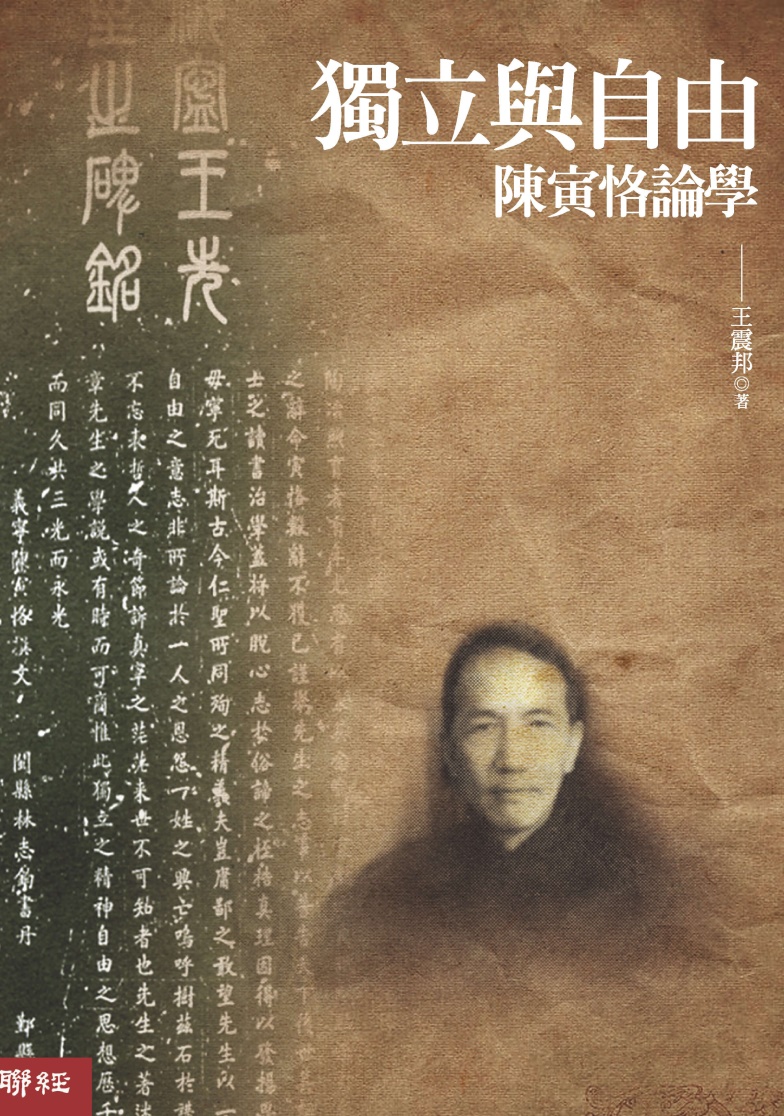 獨立與自由
陳寅恪論學
王震邦◎著
寧王先
生之碑銘
陶冶煦育者有年尤思有以
之辭命寅恪數辭不獲已謹舉先生之志事以普告天下後世其
士之讀書治學蓋將以脫心志於俗諦之桎梏真理因得以發揚思
毋寧死耳斯古今仁聖所同殉之精義夫豈庸鄙之敢望先生以一
自由之意志非所論於一人之恩怨一姓之興亡嗚呼樹茲石於講
不忘表哲人之奇節訴真宰之茫茫來世不可知者也先生之著述
章先生之學說或有時而可商惟此獨立之精神自由之思想歷千
而同久共三光而永光
義寧陳寅恪撰文 閩縣林志鈞書丹 鄞縣
聯經